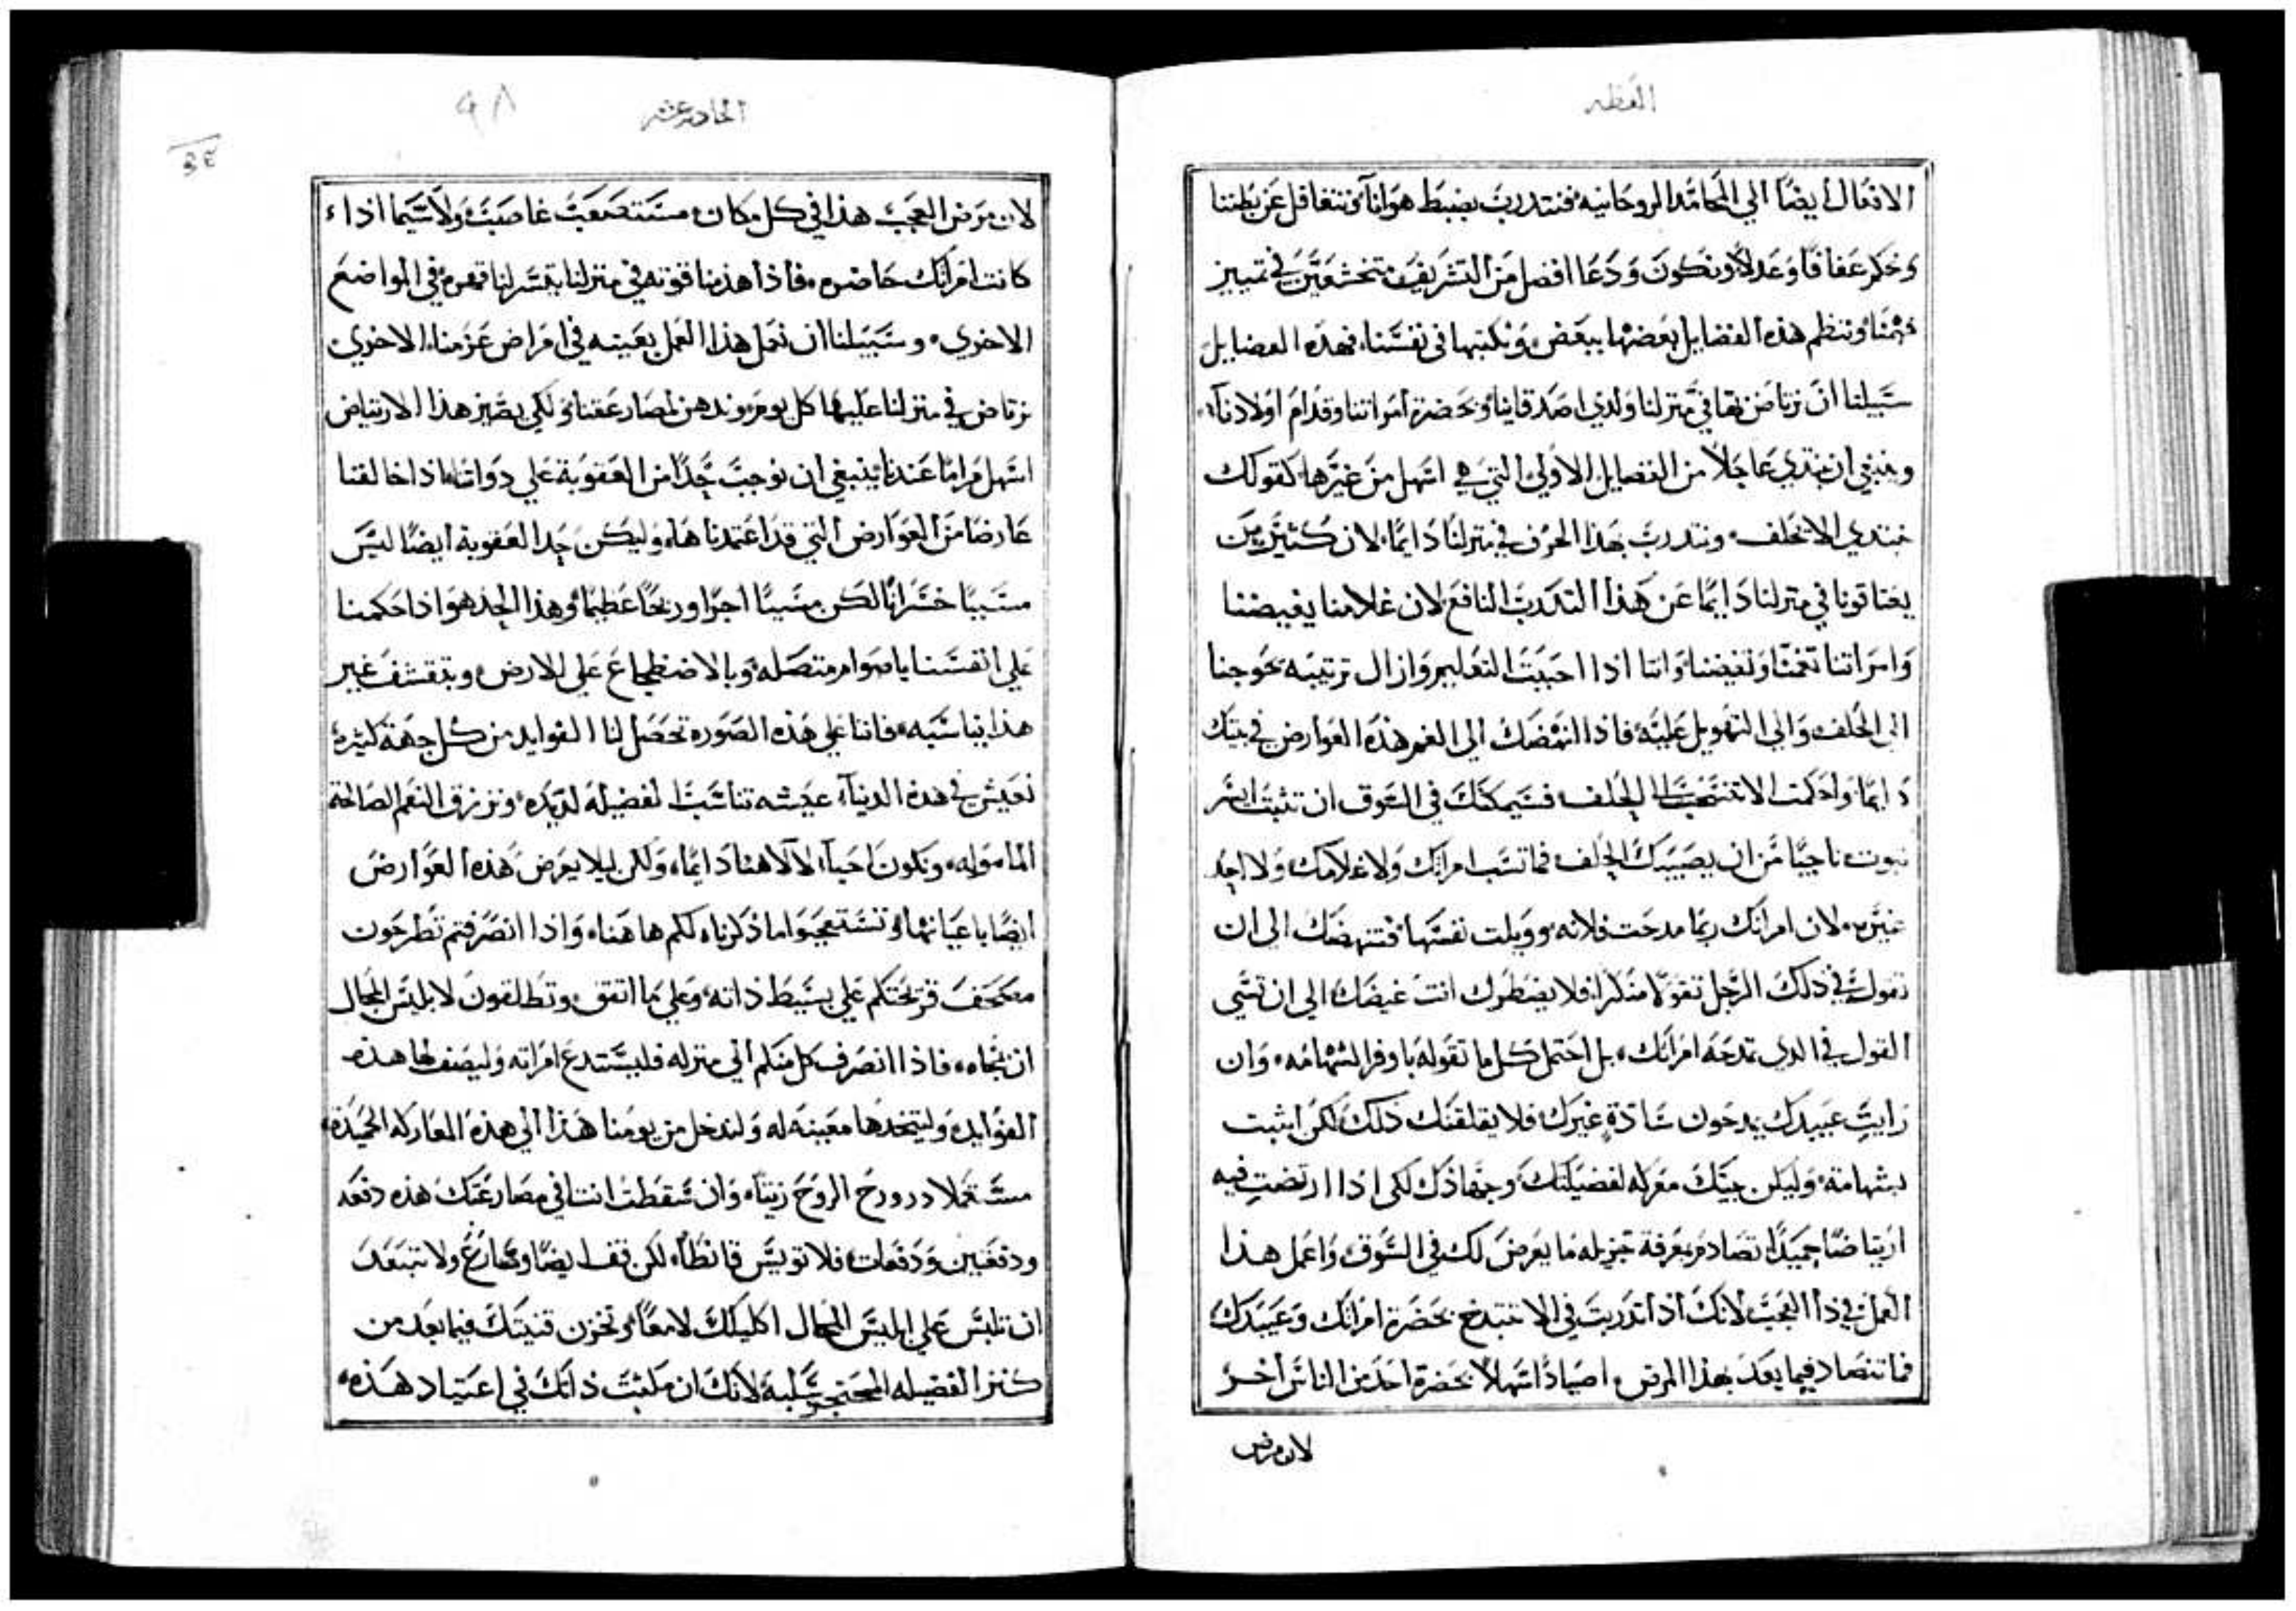 العظه
الافعال ايضًا الي المحامد الروحانيه فنتدرب بضبط هوانا ونتغافل عن بطننا
عفافًا وعدلاً ونكون ودعا افضل من التشريف متخشعين في تمييز
وننظم هذه الفضايل بعضها ببعض ونكتبها في نفسنا فهذه الفضايل
سبيلنا ان نرتاض بها في منزلنا ولدي اصدقاينا وبحضرة امراتنا وقدام اولادنا
وينبغي ان نبتدي عاجلاً من الفضايل الاولي التي هي اسهل من غيرها كقولك
نبتدي الا نحلف ونتدرب بهذا الحرف في منزلنا دايمًا لان كثيرين
يعتاقونا في منزلنا دايمًا عن هذا التدرب النافع لان غلامنا يغيضنا
وامراتنا تغمنا وتغيضنا وابنا اذا احببت التعليم وازال ترتيبه يحوجنا
الي الحلف والي التهويل عليه فاذا انهضك الي الغم هذه العوارض في بيتك
دايمًا واحكمت الا الحلف فسيمكنك في السوق ان تثبت ايسر
ثبوت ناجيًا من ان يصيبك الحلف فما تسب امراتك ولا غلامك ولا احد
غيره لان امراتك ربما مدحت فلانه وويلت نفسها فتنهضك الي ان
تقول في ذلك الرجل تقولا منكرا فلا يضطرك انت غيضك الي ان تسي
القول في الدي تمدحه امراتك بل احتمل كل ما تقوله باوفر الشهامه وان
رايت عبيدك يمدحون سادة غيرك فلا يقلقنك ذلك لكن اثبت
بشهامة وليكن بيتك معركه لفضيلتك وجهادك لكي اذا ارتضت فيه
ارتياضًا حميدًا تصادم بمعرفة جزيله ما يعرض لك في السوق واعمل هذا
العمل في دا العجب لانك اذا تدربت في الا تتبدخ بحضرة امراتك وعبيدك
فما تنصاد فيما بعد بهذا المرض اصيادًا اسهلاً بحضرة احد من الناس اخر
لان مرض
الحادي عشر
٩٨
لان مرض العجب هذا في كل مكان مستصعب غاصب ولا سيما اذا
كانت امراتك حاضره فاذا هذمنا قوته في منزلنا تيسر لنا قهره في المواضع
الاخري وسبيلنا ان نعمل هذا العمل بعينه في امراض عزمنا الاخري
نرتاض في منزلنا عليها كل يوم وندهن لمصارعتنا ولكي يصير هذا الارتياض
اسهل مرامًا عندنا ينبغي ان نوجب حدًا من العقوبة علي دواتنا اذا خالفنا
عارضًا من العوارض التي قد اعتمدناها وليكن حد العقوبه ايضًا ليس
مسببًا خسرانًا لكن مسببًا اجرًا وربحًا عظيمًا وهذا الحد هو اذا حكمنا
علي انفسنا باصوام متصله وبالاضطجاع علي الارض وبتقشف غير
هذا يناسبه فاننا علي هذه الصوره تحصل لنا الفوايد من كل جهة كثيرة
نعيش في هذه الدنيا عيشه تناسب الفضيله لديده ونرزق النعم الصالحة
المامولة ونكون احبآ لالاهنا دايمًا ولكن ليلا يعرض هذه العوارض
ايضًا باعيانها وتستعجبوا ما ذكرناه لكم هاهنا واذا انصرفتم تطرحون
مصحف قريحتكم علي بسيط ذاته وعلي ما اتفق وتطلقون لابليس المحال
ان يمحاه فاذا انصرف كل منكم الي منزله فليستدع امراته وليصف لها هذه
الفوايد وليتخدها معينه له ولندخل من يومنا هذا الي هذه المعاركه الحميده
مستعملا درورح الروح زيتًا وان سقطت انت في مصارعتك هذه دفعه
ودفعتين ودفعات فلا تويس قانطًا لكن قف ايضًا وصارع ولا تبتعد
ان تلبس علي ابليس المحال اكليلك لامعًا وتخزن قنيتك فيما بعد من
كنز الفضيله المحتجر سلبه لانك ان ملبث ذاتك في اعتياد هذه